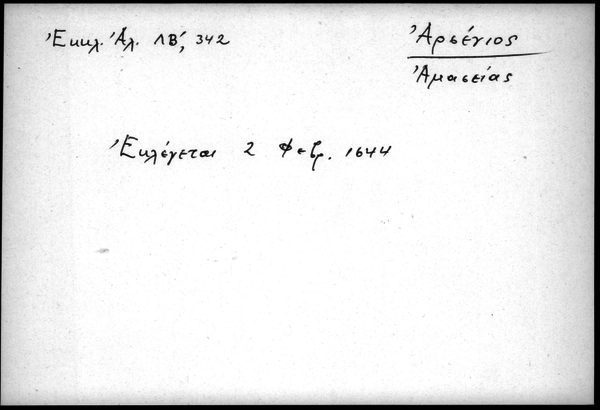 Ἐκκλ. Ἀλ. ΛΒ΄, 342
Ἀρσένιος
Ἀμασείας
Ἐκλέγεται 2 Φεβρ. 1644